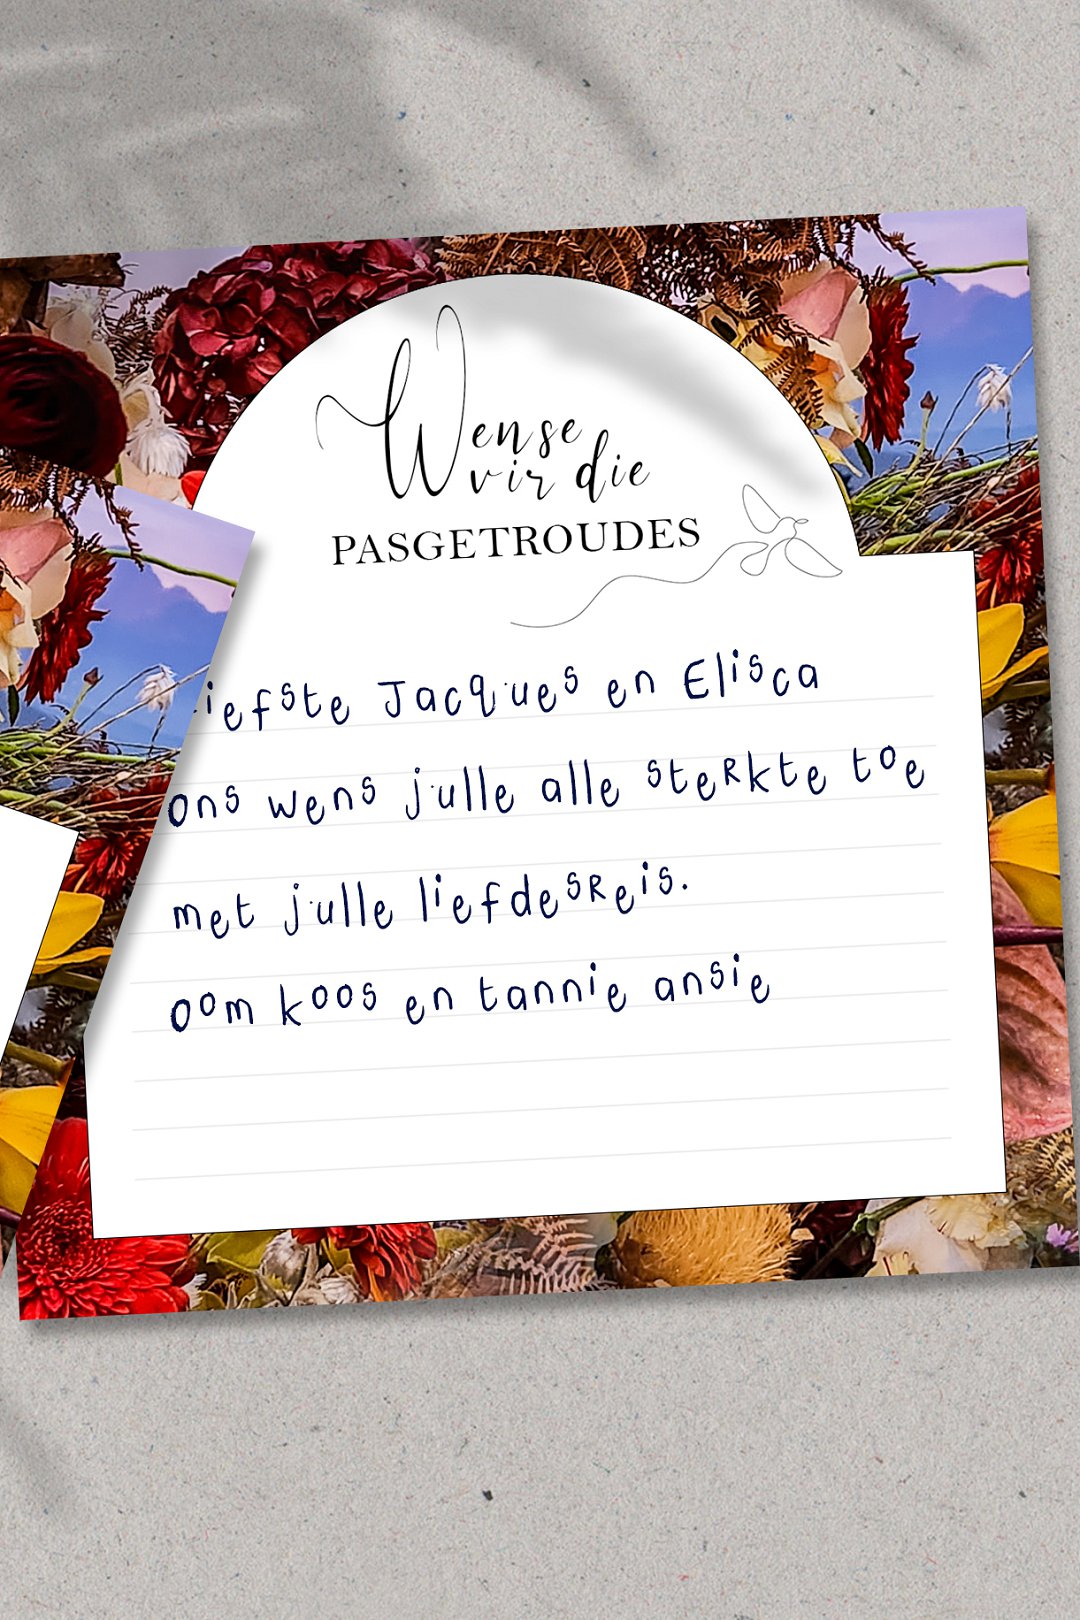 Wense
vir die
PASGETROUDES
Liefste Jacques en Elisca
ons wens julle alle sterkte toe
met julle liefdesreis.
oom koos en tannie ansie